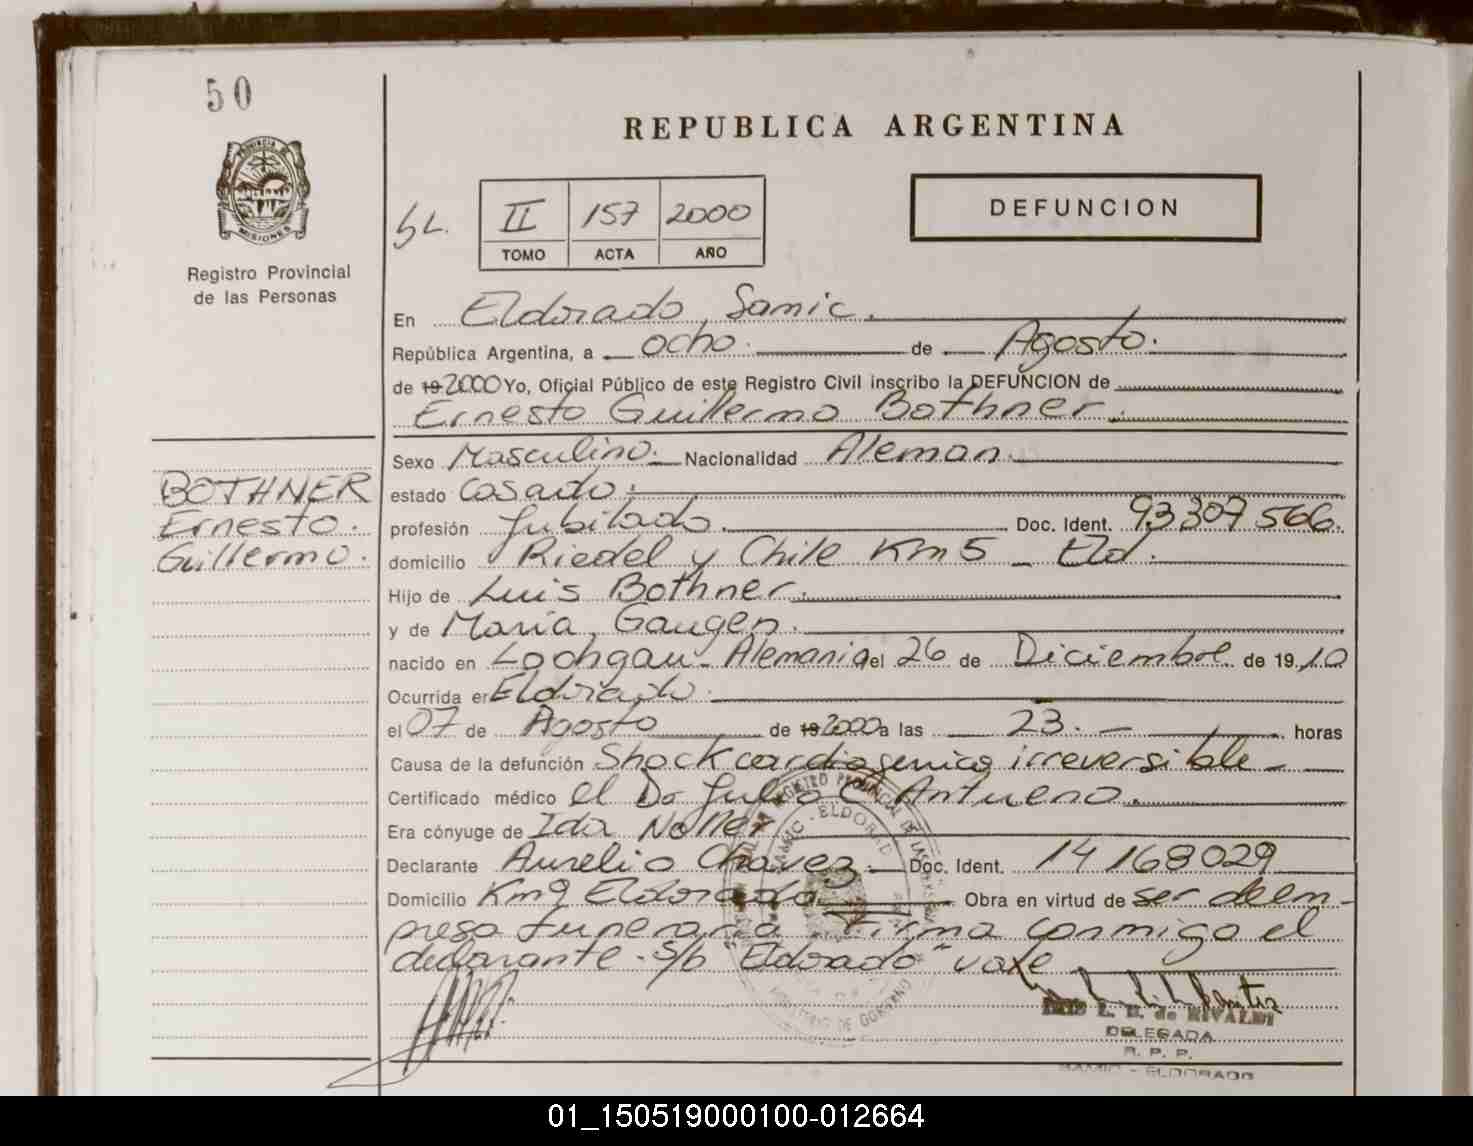 50
REPUBLICA ARGENTINA
PROVINCIA DE
MISIONES
Registro Provincial
de las Personas
II 157 2000
TOMO ACTA AÑO
DEFUNCION
En Eldorado, Samic.
República Argentina, a ocho. de Agosto.
de 19 2000 Yo, Oficial Público de este Registro Civil inscribo la DEFUNCION de
Ernesto Guillermo Bothner.
Sexo Masculino. Nacionalidad Aleman.
BOTHNER
Ernesto.
Guillermo.
estado Casado.
profesión Jubilado. Doc. Ident. 93307566.
domicilio Riedel y Chile Km 5 - Eld.
Hijo de Luis Bothner.
y de María Gaugen.
nacido en Lochgau - Alemania el 26 de Diciembre de 19 10
Ocurrida en Eldorado.
el 07 de Agosto de 19 2000 a las 23. - horas
Causa de la defunción Shock cardiogenico irreversible -
Certificado médico el Dr Julio C Antueno.
Era cónyuge de Ida
Declarante Aurelio Chavez - Doc. Ident. 14168029
Domicilio Km 9 Eldorado Obra en virtud de ser de em-
presa funeraria. Firma conmigo el
declarante - S/b "Eldorado" vale
L. B. de RIVALDI
DELEGADA
R. P. P.
SAMIC - ELDORADO
01_150519000100-012664